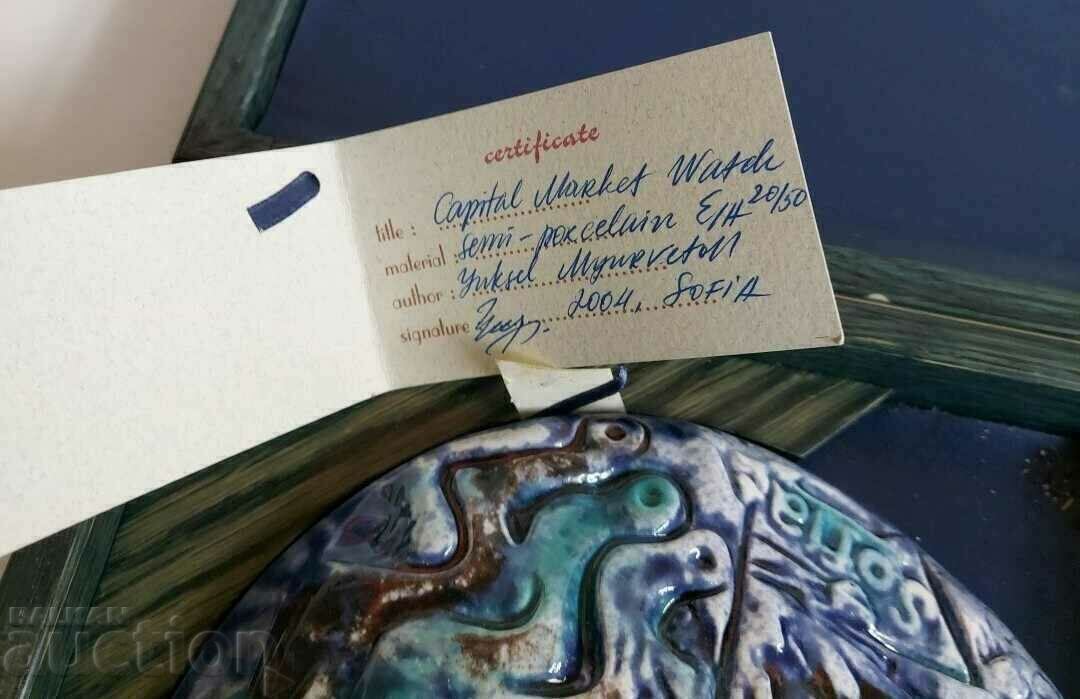 certificate
title: Capital Market Watch
material: semi-porcelain E/A 20/50
author: Yuksel
signature 2004, SOFIA
BALKAN
auction